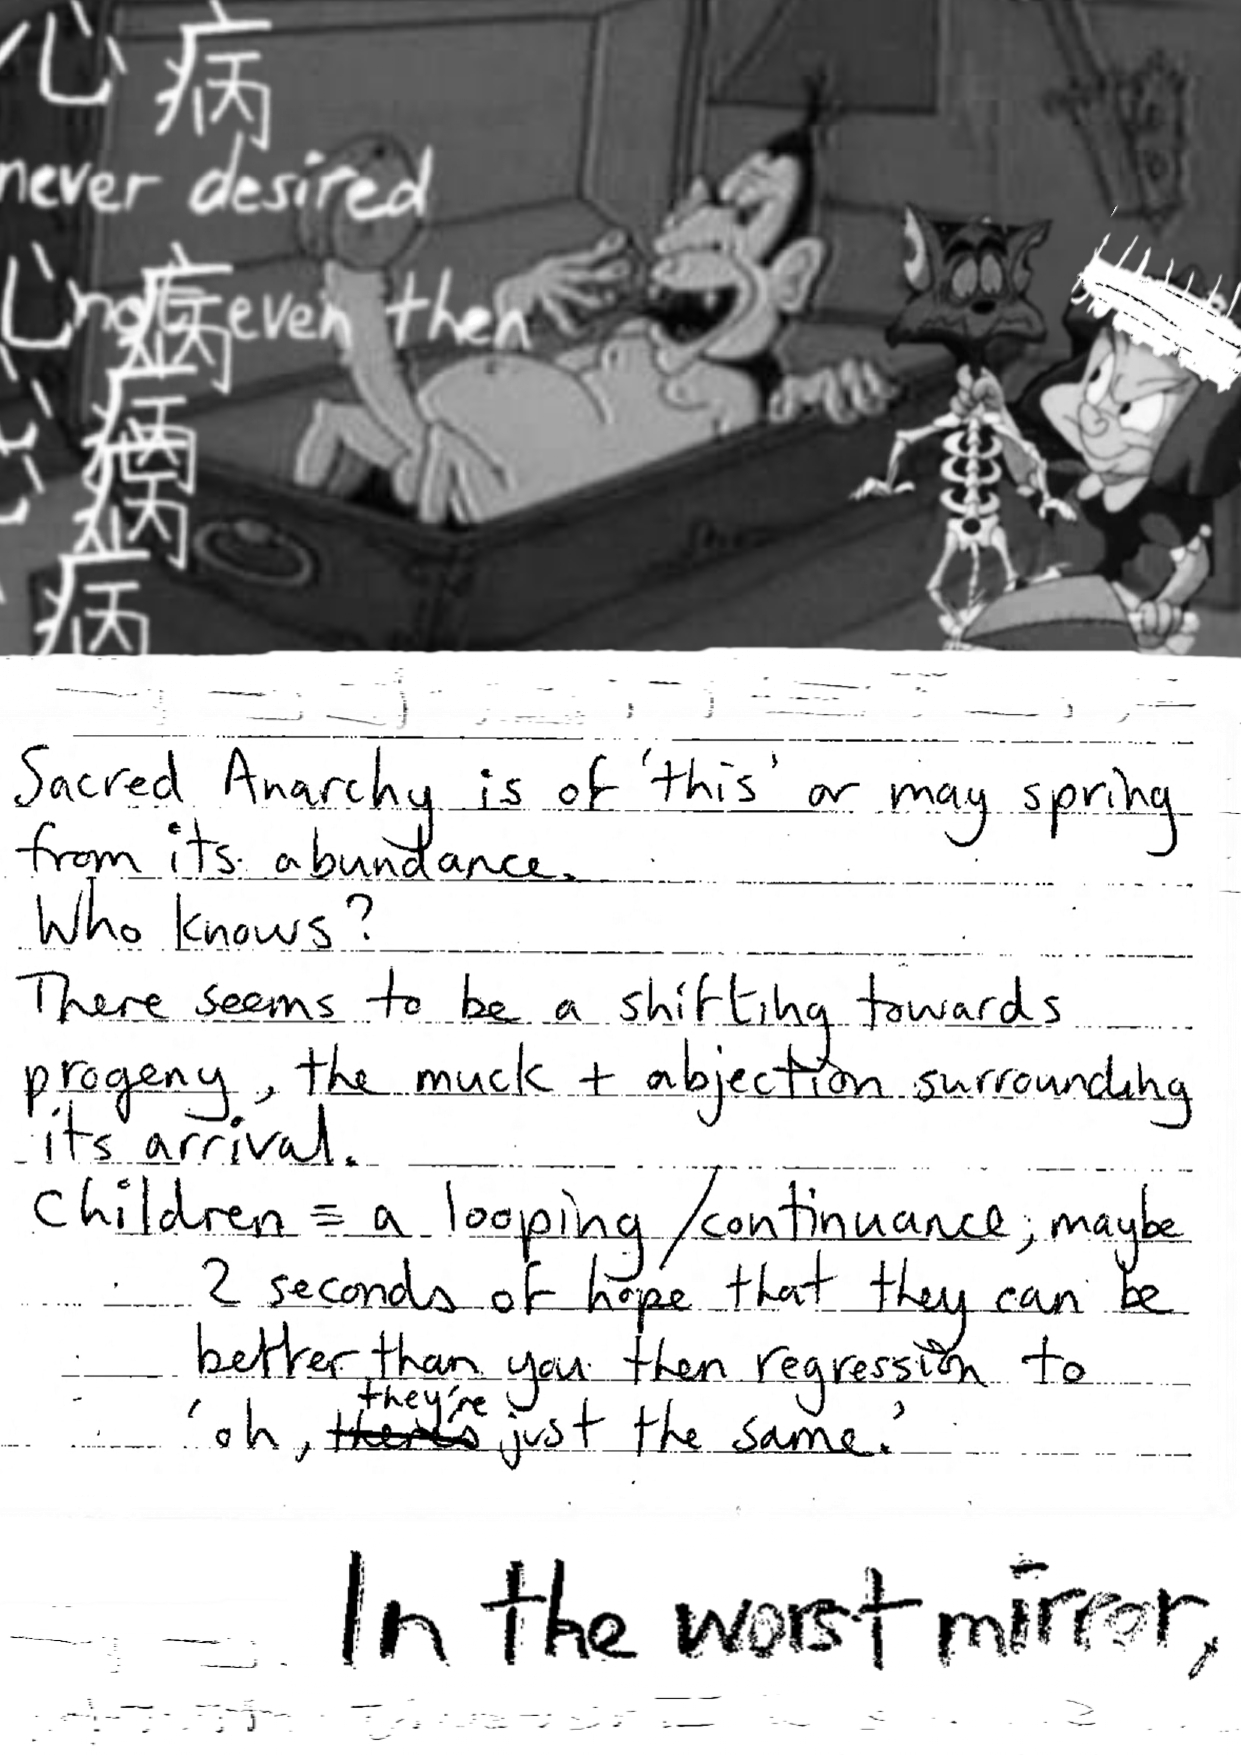 心病
never desired
心病
not even then
病
病
病
Sacred Anarchy is of 'this' or may spring
from its abundance.
Who knows?
There seems to be a shifting towards
progeny, the muck + abjection surrounding
its arrival.
Children ≡ a looping/continuance; maybe
2 seconds of hope that they can be
better than you then regression to
'oh, they're just the same.'
In the worst mirror,